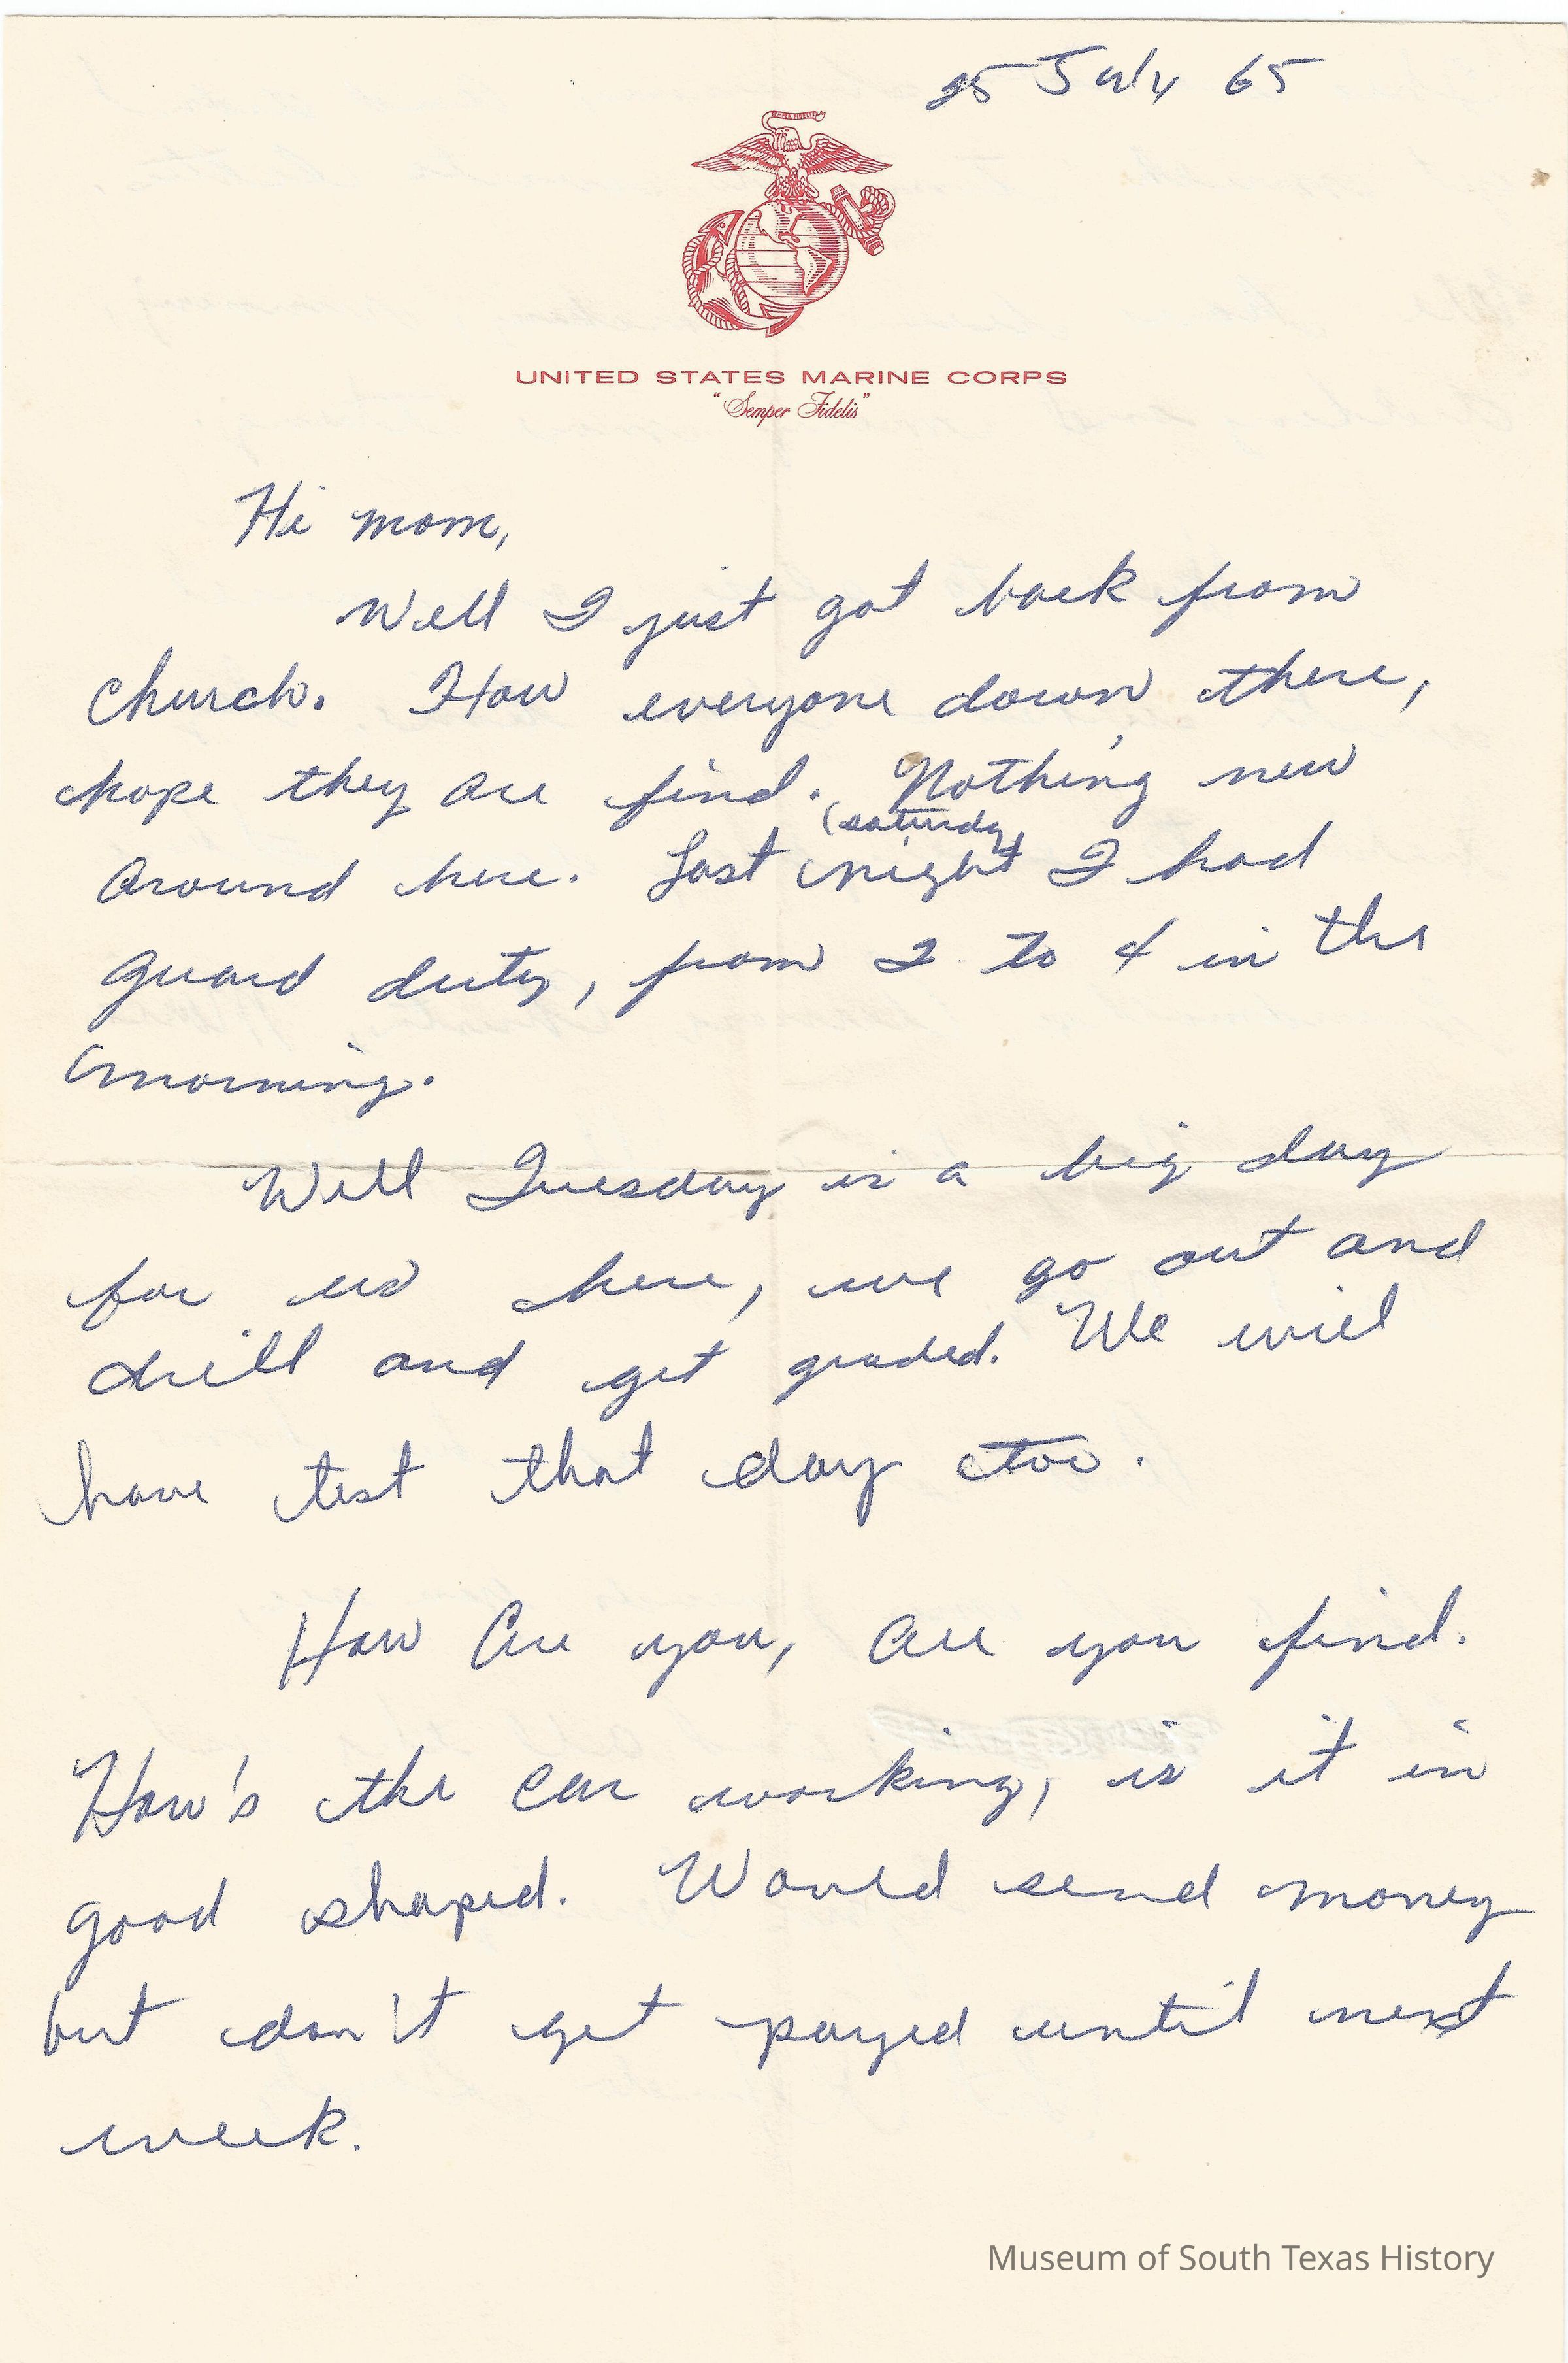 25 July 65
UNITED STATES MARINE CORPS
"Semper Fidelis"
Hi mom,
Well I just got back from
church. How everyone down there,
hope they are find. Nothing new
(saturday)
around here. Last night I had
guard duty, from 2 to 4 in the
morning.
Well Tuesday is a big day
for us here, we go out and
drill and get graded. We will
have test that day too.
How are you, are you find.
How's the car working, is it in
good shaped. Would send money
but don't get payed until next
week.
Museum of South Texas History